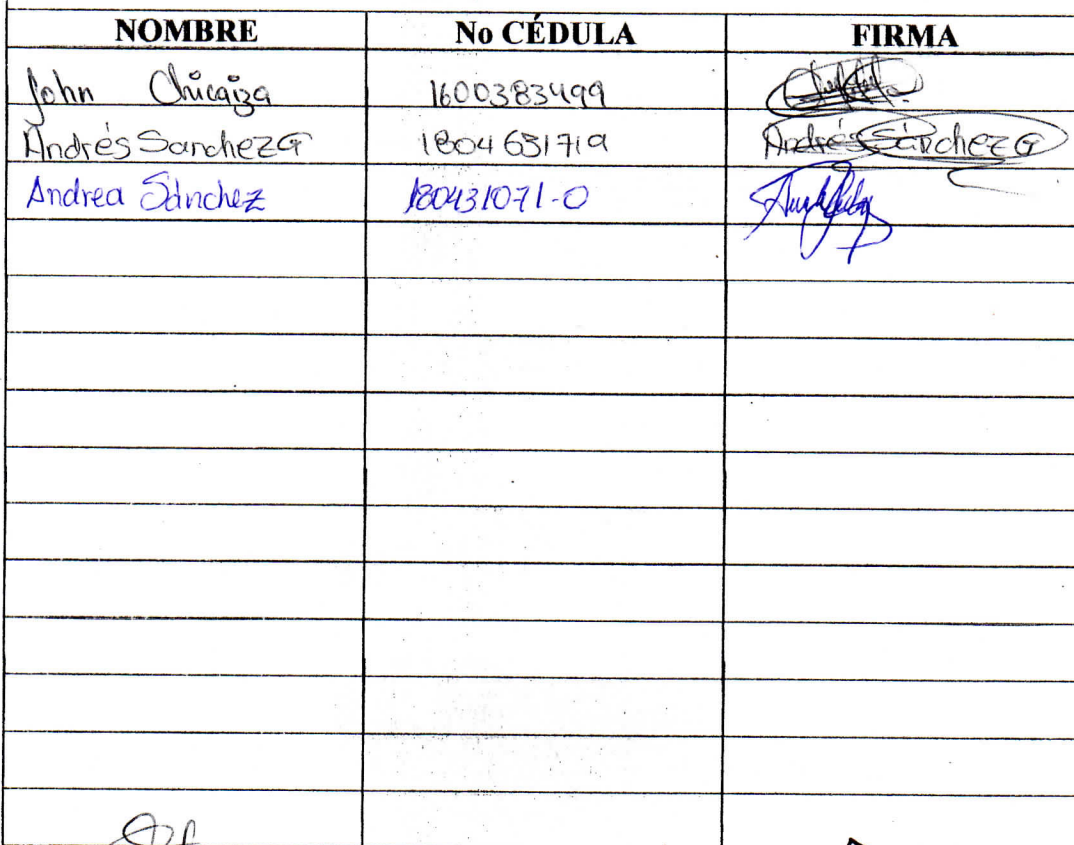 NOMBRE No CÉDULA FIRMA
John Chicaiza 1600383499
Andrés Sanchez G 1804651719 Andrés Sánchez G
Andrea Sánchez 180431071-0